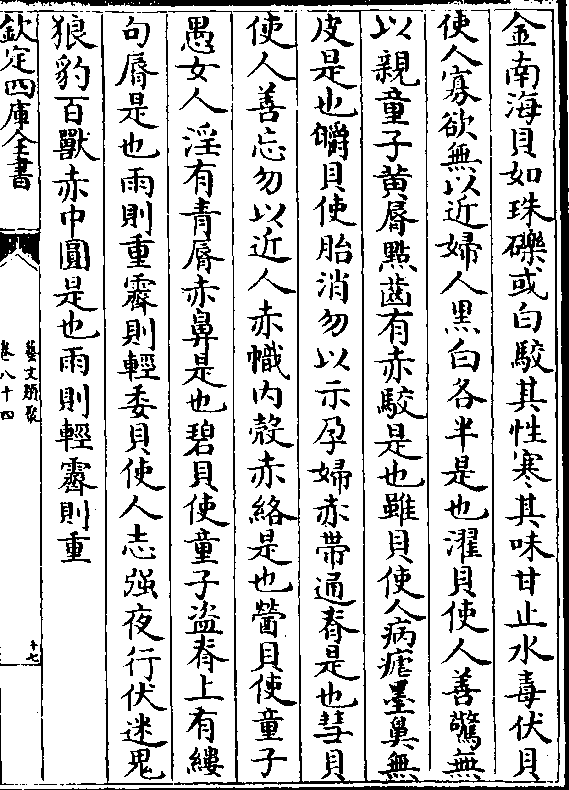 金南海貝如珠礫或白駮其性寒其味甘止水毒伏貝
使人寡欲無以近婦人黒白各半是也濯貝使人善驚無
以親童子黄脣點齒有赤駮是也雖貝使人病瘧墨鼻無
皮是也㬭貝使胎消勿以示孕婦赤帶通脊是也彗貝
使人善忘勿以近人赤幟内殻赤絡是也醟貝使童子
愚女人淫有青脣赤鼻是也碧貝使童子盗脊上有縷
句脣是也雨則重霽則輕委貝使人志强夜行伏迷鬼
狼豹百獸赤中圓是也雨則輕霽則重
欽定四庫全書
藝文類聚
卷八十四
十七